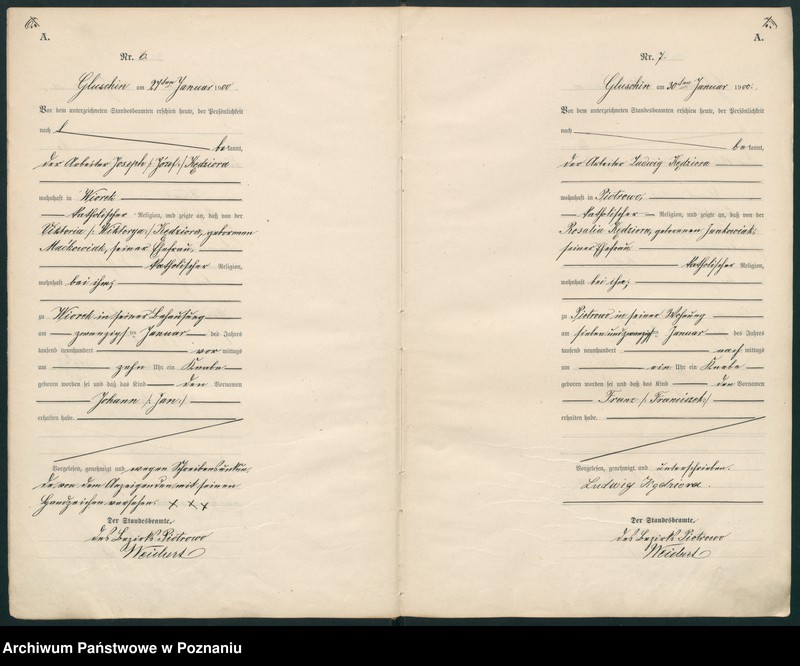 A.
Nr. 6.
Gluschin am 27ten Januar 1900.
Vor dem unterzeichneten Standesbeamten erschien heute, der Persönlichkeit
nach
bekannt,
der Arbeiter Joseph /: Józef :/ Kędziora
wohnhaft in Wiorek
katholischer Religion, und zeigte an, daß von der
Viktoria /: Wiktorya :/ Kędziora, geborenen
Maćkowiak, seiner Ehefrau,
katholischer Religion,
wohnhaft bei ihm,
zu Wiorek in seiner Behausung
am zwanzigsten Januar des Jahres
tausend neunhundert vor mittags
um zehn Uhr ein Knabe
geboren worden sei und daß das Kind den Vornamen
Johann /: Jan :/
erhalten habe.
Vorgelesen, genehmigt und wegen Schreibensunkun-
de von dem Anzeigenden mit seinen
Handzeichen versehen. x x x
Der Standesbeamte,
des Bezirks Piotrowo
Weidert
7.
A.
Nr. 7.
Gluschin am 30ten Januar 1900.
Vor dem unterzeichneten Standesbeamten erschien heute, der Persönlichkeit
nach
bekannt,
der Arbeiter Ludwig Kędziora
wohnhaft in Piotrowo,
katholischer Religion, und zeigte an, daß von der
Rosalia Kędziora, geborenen Jankowiak,
seiner Ehefrau
katholischer Religion,
wohnhaft bei ihm,
zu Piotrowo in seiner Wohnung
am siebenundzwanzigsten Januar des Jahres
tausend neunhundert nach mittags
um ein Uhr ein Knabe
geboren worden sei und daß das Kind den Vornamen
Franz /: Franciszek :/
erhalten habe.
Vorgelesen, genehmigt und unterschrieben.
Ludwig Kędziora.
Der Standesbeamte,
des Bezirks Piotrowo
Weidert
Archiwum Państwowe w Poznaniu